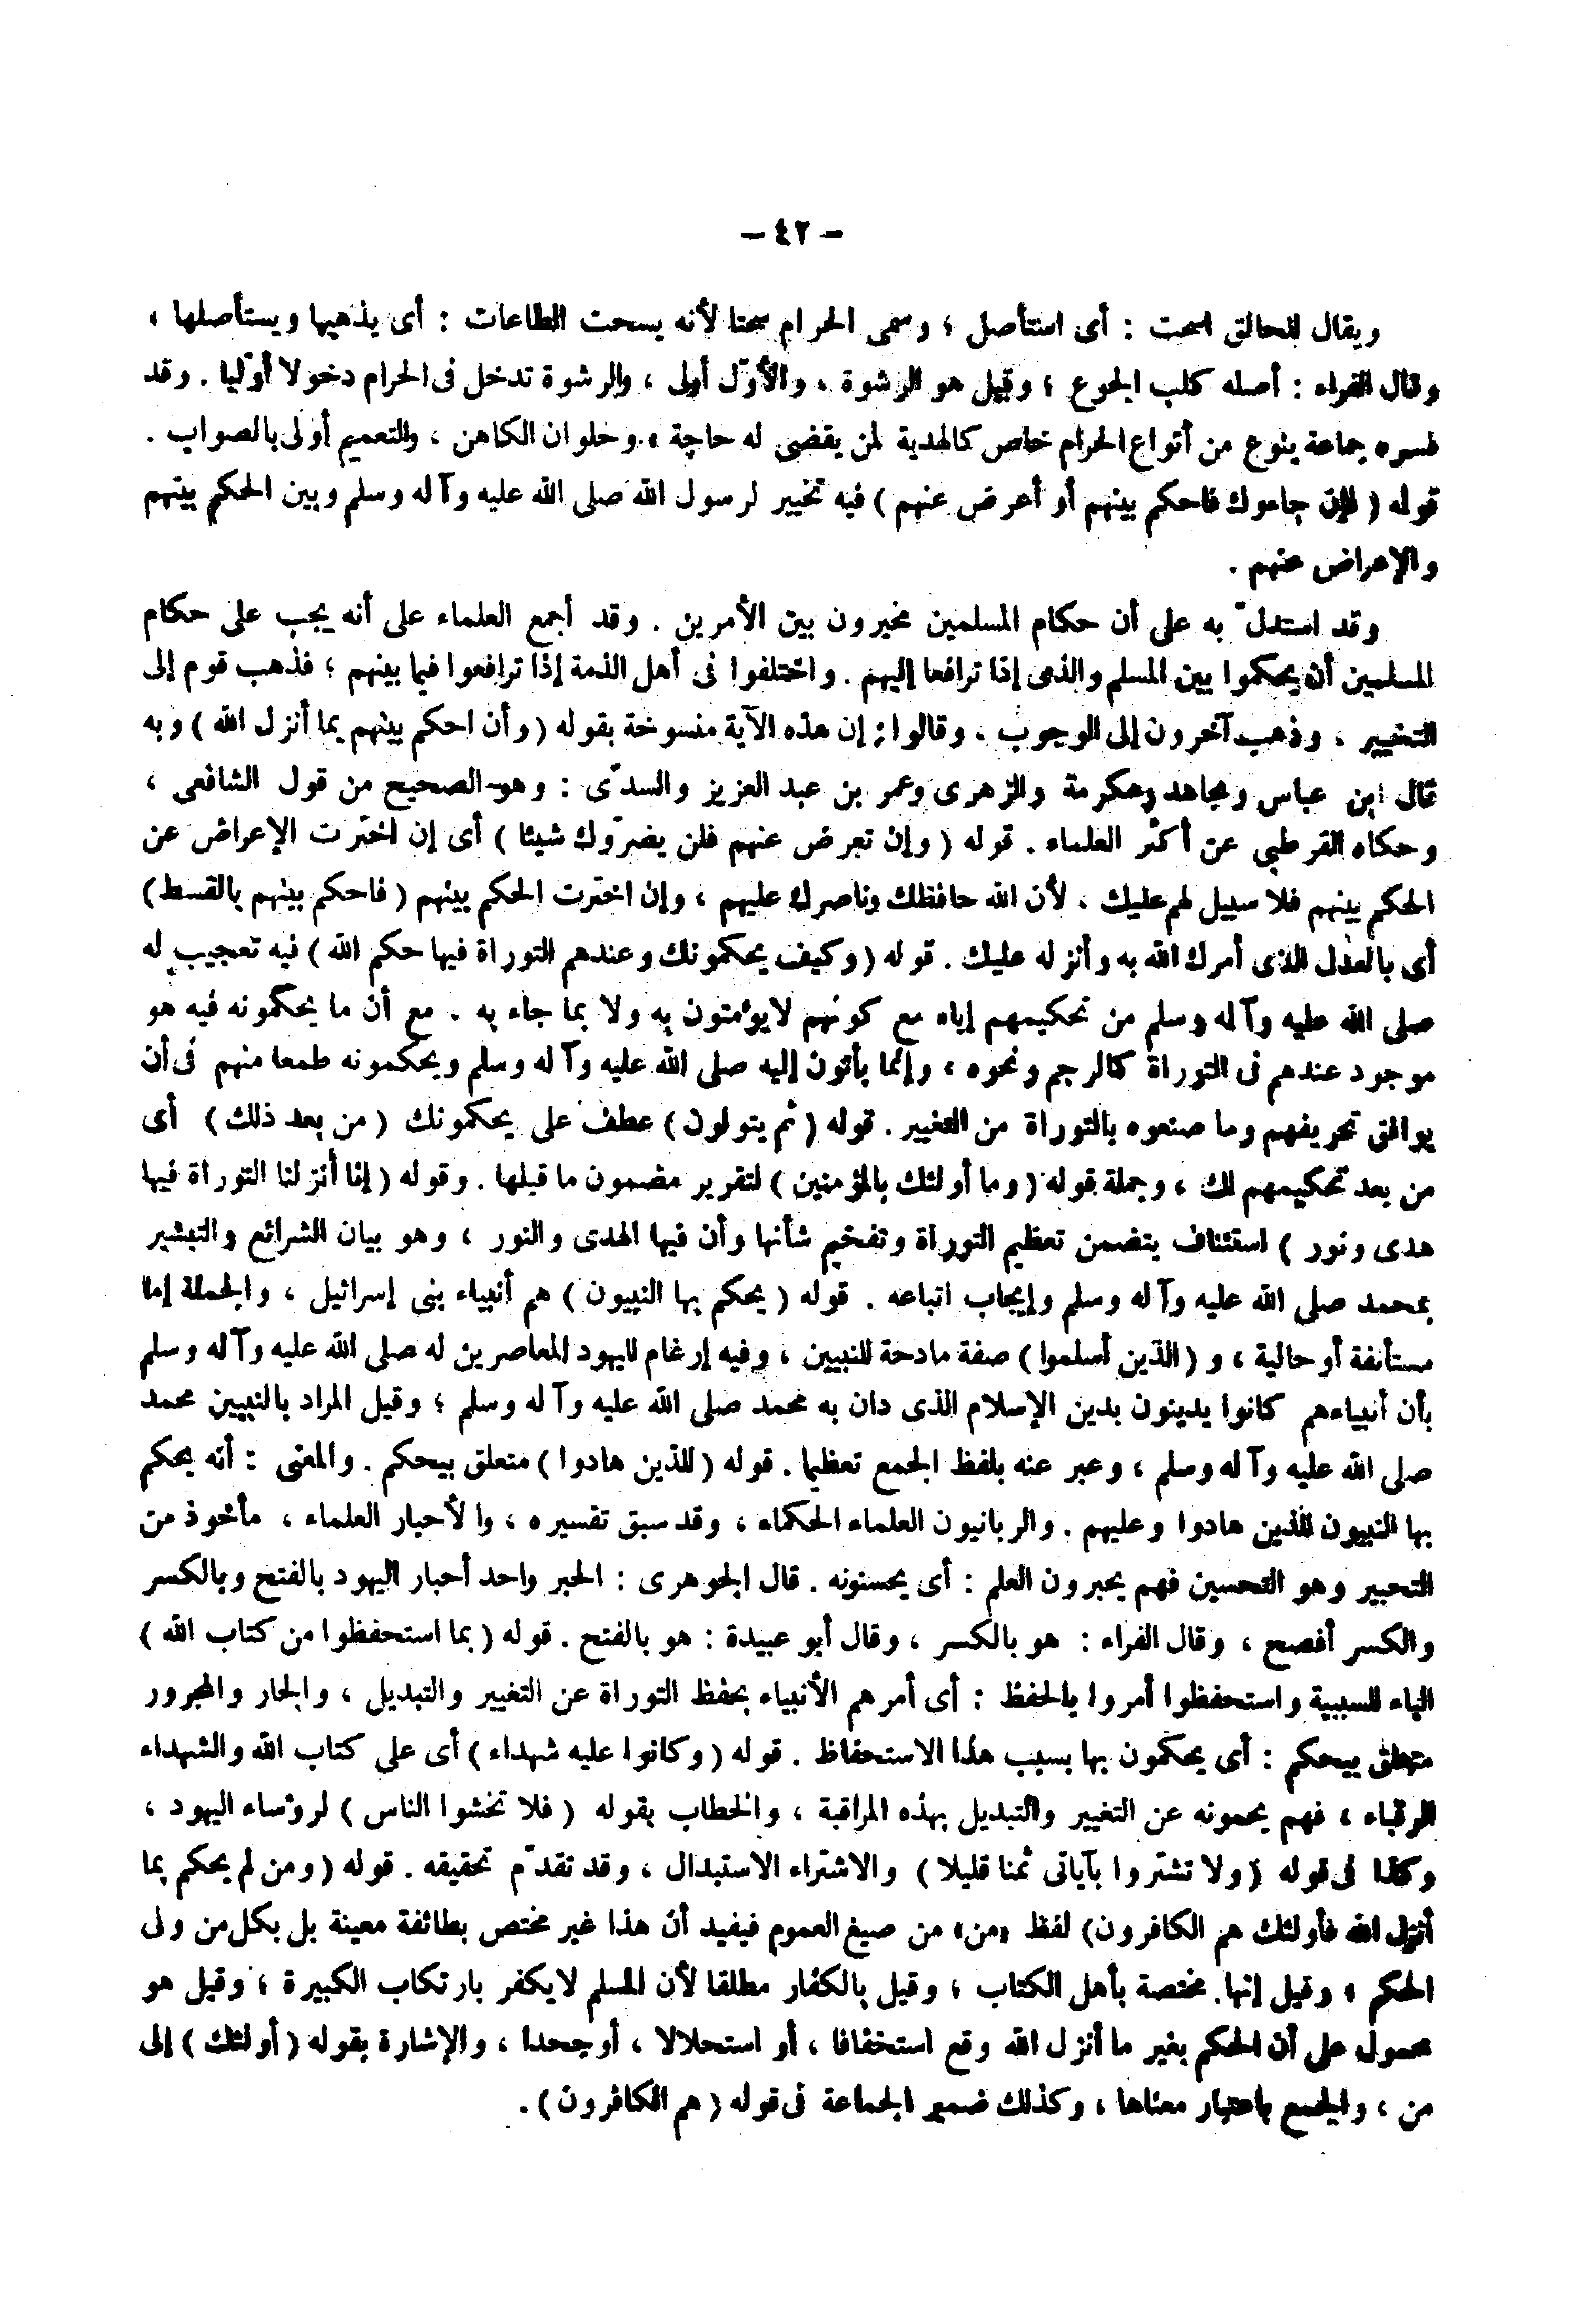 – ٤٢ –
ويقال للحالق اسحت : أى استأصل ؛ وسمى الحرام سحتا لأنه يسحت الطاعات : أى يذهبها ويستأصلها ،
وقال الفراء : أصله كلب الجوع ؛ وقيل هو الرشوة ، والأوّل أولى ، والرشوة تدخل فى الحرام دخولا أوّليا . وقد
فسره جماعة بنوع من أنواع الحرام خاص كالهدية لمن يقضى له حاجة ، وحلوان الكاهن ، والتعميم أولى بالصواب .
قوله ( فإن جاءوك فاحكم بينهم أو أعرض عنهم ) فيه تخيير لرسول الله صلى الله عليه وآله وسلم وبين الحكم بينهم
والإعراض عنهم .
وقد استدلّ به على أن حكام المسلمين مخيرون بين الأمرين . وقد أجمع العلماء على أنه يجب على حكام
المسلمين أن يحكموا بين المسلم والذمى إذا ترافعا إليهم . واختلفوا فى أهل الذمة إذا ترافعوا فيما بينهم ؛ فذهب قوم إلى
التخيير ، وذهب آخرون إلى الوجوب ، وقالوا : إن هذه الآية منسوخة بقوله ( وأن احكم بينهم بما أنزل الله ) وبه
قال ابن عباس ومجاهد وعكرمة والزهرى وعمر بن عبد العزيز والسدّى : وهو الصحيح من قول الشافعى ،
وحكاه القرطبى عن أكثر العلماء . قوله ( وإن تعرض عنهم فلن يضرّوك شيئا ) أى إن اخترت الإعراض عن
الحكم بينهم فلا سبيل لهم عليك ، لأن الله حافظك وناصرك عليهم ، وإن اخترت الحكم بينهم ( فاحكم بينهم بالقسط )
أى بالعدل الذى أمرك الله به وأنزله عليك . قوله ( وكيف يحكمونك وعندهم التوراة فيها حكم الله ) فيه تعجيب له
صلى الله عليه وآله وسلم من تحكيمهم إياه مع كونهم لايؤمنون به ولا بما جاء به . مع أن ما يحكمونه فيه هو
موجود عندهم فى التوراة كالرجم ونحوه ، وإنما يأتون إليه صلى الله عليه وآله وسلم ويحكمونه طمعا منهم فى أن
يوافق تحريفهم وما صنعوه بالتوراة من التغيير . قوله ( ثم يتولون ) عطف على يحكمونك ( من بعد ذلك ) أى
من بعد تحكيمهم لك ، وجملة قوله ( وما أولئك بالمؤمنين ) لتقرير مضمون ما قبلها . وقوله ( إنا أنزلنا التوراة فيها
هدى ونور ) استئناف يتضمن تعظيم التوراة وتفخيم شأنها وأن فيها الهدى والنور ، وهو بيان الشرائع والتبشير
بمحمد صلى الله عليه وآله وسلم وإيجاب اتباعه . قوله ( يحكم بها النبيون ) هم أنبياء بنى إسرائيل ، والجملة إما
مستأنفة أو حالية ، و ( الذين أسلموا ) صفة مادحة للنبيين ، وفيه إرغام لليهود المعاصرين له صلى الله عليه وآله وسلم
بأن أنبياءهم كانوا يدينون بدين الإسلام الذى دان به محمد صلى الله عليه وآله وسلم ؛ وقيل المراد بالنبيين محمد
صلى الله عليه وآله وسلم ، وعبر عنه بلفظ الجمع تعظيما . قوله ( للذين هادوا ) متعلق بيحكم . والمعنى : أنه يحكم
بها النبيون للذين هادوا وعليهم . والربانيون العلماء الحكماء ، وقد سبق تفسيره ، والأحبار العلماء ، مأخوذ من
التحبير وهو التحسين فهم يحبرون العلم : أى يحسنونه . قال الجوهرى : الحبر واحد أحبار اليهود بالفتح وبالكسر
والكسر أفصح ، وقال الفراء : هو بالكسر ، وقال أبو عبيدة : هو بالفتح . قوله ( بما استحفظوا من كتاب الله )
الباء للسببية واستحفظوا أمروا بالحفظ : أى أمرهم الأنبياء بحفظ التوراة عن التغيير والتبديل ، والجار والمجرور
متعلق بيحكم : أى يحكمون بها بسبب هذا الاستحفاظ . قوله ( وكانوا عليه شهداء ) أى على كتاب الله والشهداء
الرقباء ، فهم يحمونه عن التغيير والتبديل بهذه المراقبة ، والخطاب بقوله ( فلا تخشوا الناس ) لرؤساء اليهود ،
وكذا فى قوله ( ولا تشتروا بآياتى ثمنا قليلا ) والاشتراء الاستبدال ، وقد تقدّم تحقيقه . قوله ( ومن لم يحكم بما
أنزل الله فأولئك هم الكافرون) لفظ «من» من صيغ العموم فيفيد أن هذا غير مختص بطائفة معينة بل بكل من ولى
الحكم ، وقيل إنها مختصة بأهل الكتاب ، وقيل بالكفار مطلقا لأن المسلم لايكفر بارتكاب الكبيرة ، وقيل هو
محمول على أن الحكم بغير ما أنزل الله وقع استخفافا ، أو استحلالا ، أو جحدا ، والإشارة بقوله ( أولئك ) إلى
من ، والجمع باعتبار معناها ، وكذلك ضمير الجماعة فى قوله ( هم الكافرون ) .